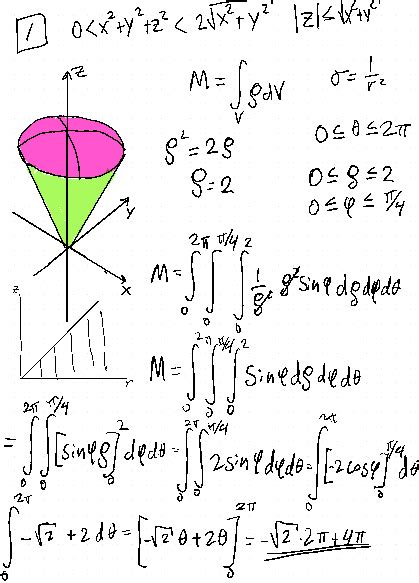 1 0<x²+y²+z² < 2√x²+y² |z|≤√x²+y²
M = ∫_V ρdV σ = 1/r²
ρ² = 2ρ 0 ≤ θ ≤ 2π
ρ = 2 0 ≤ ρ ≤ 2
0 ≤ φ ≤ π/4
z
y
x
M = ∫_0^{2π} ∫_0^{π/4} ∫_0^2 1/ρ² ρ² sinφ dρdφdθ
z
r
M = ∫_0^{2π} ∫_0^{π/4} ∫_0^2 sinφ dρdφdθ
= ∫_0^{2π} ∫_0^{π/4} [sinφρ]_0^2 dφdθ = ∫_0^{2π} ∫_0^{π/4} 2sinφdφdθ = ∫_0^{2π} [-2cosφ]_0^{π/4} dθ
∫_0^{2π} -√2 + 2 dθ = [-√2 θ + 2θ]_0^{2π} = -√2·2π+4π